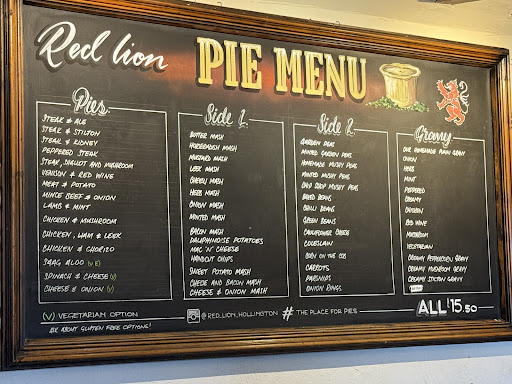 Red Lion
PIE MENU
Pies
STEAK & ALE
STEAK & STILTON
STEAK & KIDNEY
PEPPERED STEAK
STEAK, SHALLOT AND MUSHROOM
VENISON & RED WINE
MEAT & POTATO
MINCE BEEF & ONION
LAMB & MINT
CHICKEN & MUSHROOM
CHICKEN, HAM & LEEK
CHICKEN & CHORIZO
SAAG ALOO (VE)
SPINACH & CHEESE (V)
CHEESE & ONION (V)
Side 1.
BUTTER MASH
HORSERADISH MASH
MUSTARD MASH
LEEK MASH
GARLIC MASH
HERB MASH
ONION MASH
MINTED MASH
BACON MASH
DAUPHINOISE POTATOES
MAC 'N' CHEESE
HANDCUT CHIPS
SWEET POTATO MASH
CHEESE AND BACON MASH
CHEESE & ONION MASH
Side 2.
GARDEN PEAS
MINTED GARDEN PEAS
HOMEMADE MUSHY PEAS
MINTED MUSHY PEAS
MUSHY PEAS
BAKED BEANS
CHILLI BEANS
GREEN BEANS
CAULIFLOWER CHEESE
COLESLAW
CORN ON THE COB
CARROTS
PARSNIPS
ONION RINGS
Gravy
OUR HOMEMADE PLAIN GRAVY
ONION
HERB
MINT
PEPPERED
CREAMY
CHICKEN
RED WINE
MUSHROOM
VEGETARIAN
CREAMY PEPPERCORN GRAVY
CREAMY MUSHROOM GRAVY
CREAMY STILTON GRAVY
(V) VEGETARIAN OPTION
@RED_LION_HOLLINGTON
# THE PLACE FOR PIES
ALL £15.50
ASK ABOUT GLUTEN FREE OPTIONS!